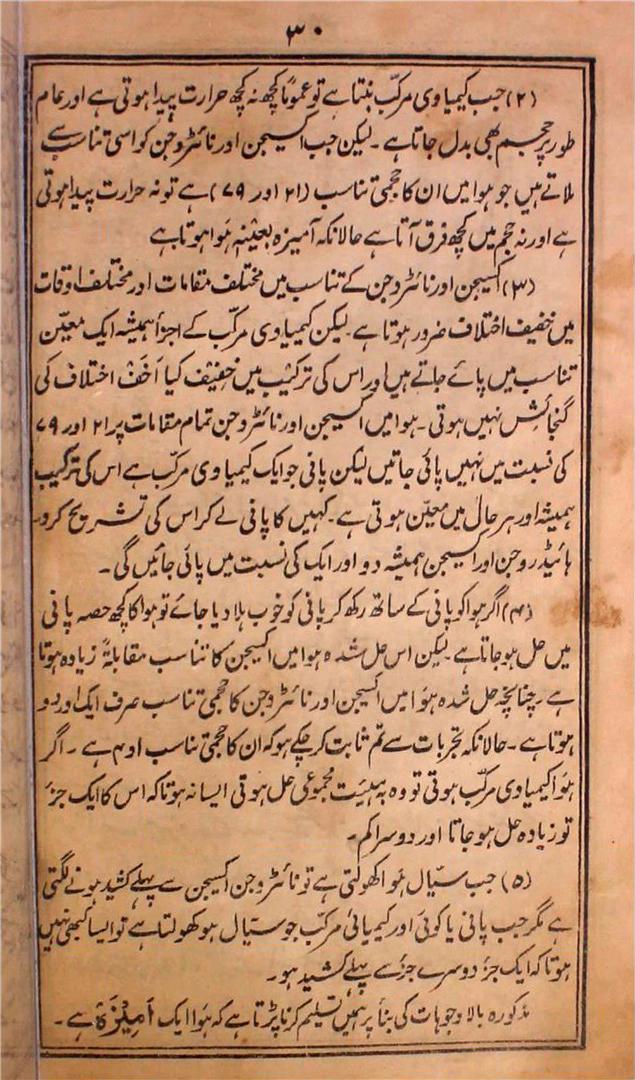 ۳۰
(۲) جب کیمیاوی مرکّب بنتا ہے تو عموماً کچھ نہ کچھ حرارت پیدا ہوتی ہے اور عام
طور پر حجم بھی بدل جاتا ہے ۔ لیکن جب اکسیجن اور نائٹروجن کو اسی تناسب سے
ملاتے ہیں جو ہوا میں ان کا حجمی تناسب (۲۱ اور ۷۹) ہے تو نہ حرارت پیدا ہوتی
ہے اور نہ حجم میں کچھ فرق آتا ہے حالانکہ آمیزہ بعینہٖ ہَوا ہوتا ہے
(۳) اکسیجن اور نائٹروجن کے تناسب میں مختلف مقامات اور مختلف اوقات
میں خفیف اختلاف ضرور ہوتا ہے ۔ لیکن کیمیاوی مرکّب کے اجزأ ہمیشہ ایک معیّن
تناسب میں پائے جاتے ہیں اور اس کی ترکیب میں خفیف کیا اَخَفّ اختلاف کی
گنجائش نہیں ہوتی ۔ ہوا میں اکسیجن اور نائٹروجن تمام مقامات پر ۲۱ اور ۷۹
کی نسبت میں نہیں پائی جاتیں لیکن پانی جو ایک کیمیاوی مرکّب ہے اس کی ترکیب
ہمیشہ اور ہر حال میں معیّن ہوتی ہے ۔ کہیں کا پانی لے کر اس کی تشریح کرو ۔
ہائیڈروجن اور اکسیجن ہمیشہ دو اور ایک کی نسبت میں پائی جائیں گی ۔
(۴) اگر ہوا کو پانی کے ساتھ رکھ کر پانی کو خوب ہلا دیا جائے تو ہوا کا کچھ حصہ پانی
میں حل ہو جاتا ہے ۔ لیکن اس حل شدہ ہوا میں اکسیجن کا تناسب مقابلۃً زیادہ ہوتا
ہے ۔ چنانچہ حل شدہ ہَوا میں اکسیجن اور نائٹروجن کا حجمی تناسب صرف ایک اور دو
ہوتا ہے ۔ حالانکہ تجربات سے تم ثابت کر چکے ہو کہ ان کا حجمی تناسب ا و ۴ ہے ۔ اگر
ہَوا کیمیاوی مرکّب ہوتی تو وہ بہ ہیئت مجموعی حل ہوتی ایسا نہ ہوتا کہ اس کا ایک جزٔ
تو زیادہ حل ہو جاتا اور دوسرا کم ۔
(۵) جب سیّال ہَوا کھولتی ہے تو نائٹروجن اکسیجن سے پہلے کشید ہونے لگتی
ہے مگر جب پانی یا کوئی اور کیمیائی مرکّب جو سیّال ہو کھولتا ہے تو ایسا کبھی نہیں
ہوتا کہ ایک جزٔ دوسرے جزٔ سے پہلے کشید ہو ۔
مذکورہ بالا وجوہات کی بنأ پر ہمیں تسلیم کرنا پڑتا ہے کہ ہَوا ایک اٰمِیْزَہْ ہے ۔